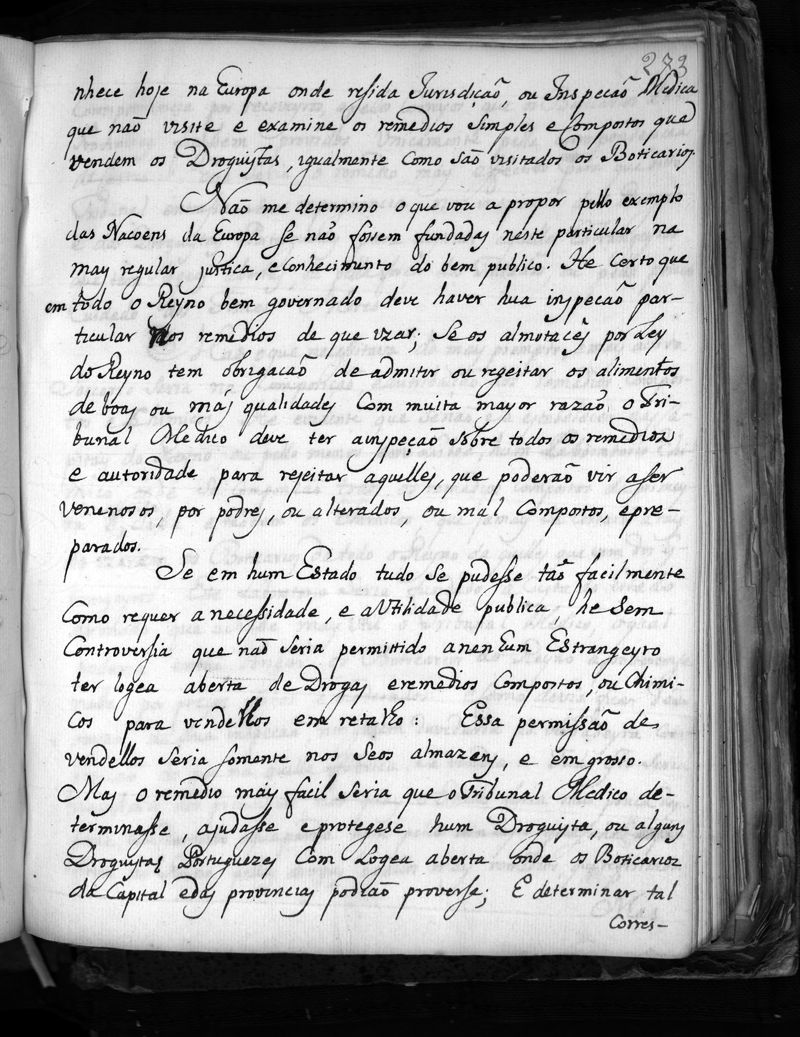 273
nhece hoje na Europa onde resida Jurisdiçaõ, ou Inspecaõ Medica
que naõ visite e examine os remedios simples e Compostos que
vendem os Droguistas, igualmente como saõ visitados os Boticarios.
Naõ me determino o que vou a propor pello exemplo
das Nacoens da Europa se naõ fossem fundadas neste particular na
mays regular justica, e conhecimento do bem publico. He certo que
em todo o Reyno bem governado deve haver hua inspecaõ par-
ticular nos remedios de que uzar; Se os almotaceis por Ley
do Reyno tem obrigacaõ de admitir ou regeitar os alimentos
de boas ou más qualidades Com muita mayor razaõ o Tri-
bunal Medico deve ter a inspeçaõ sobre todos os remedios
e autoridade para rejeitar aquelles, que poderaõ vir a ser
venenosos, por podres, ou alterados, ou mal Compostos, e pre-
parados.
Se em hum Estado tudo se pudesse taõ facilmente
Como requer a necessidade, e a Utilidade publica, he Sem
Controversia que naõ seria permittido a nenhum Estrangeyro
ter logea aberta de Drogas e remedios Compostos, ou Chimi-
cos para vendellos em retalho: Essa permissaõ de
vendellos seria somente nos seos almazens, e em grosso.
Mas o remedio mais facil seria que o Tribunal Medico de-
terminasse, ajudasse e protegese hum Droguista, ou alguns
Droguistas Portuguezes Com Logea aberta onde os Boticarios
da Capital e das provincias podiaõ proverse; E determinar tal
Corres-